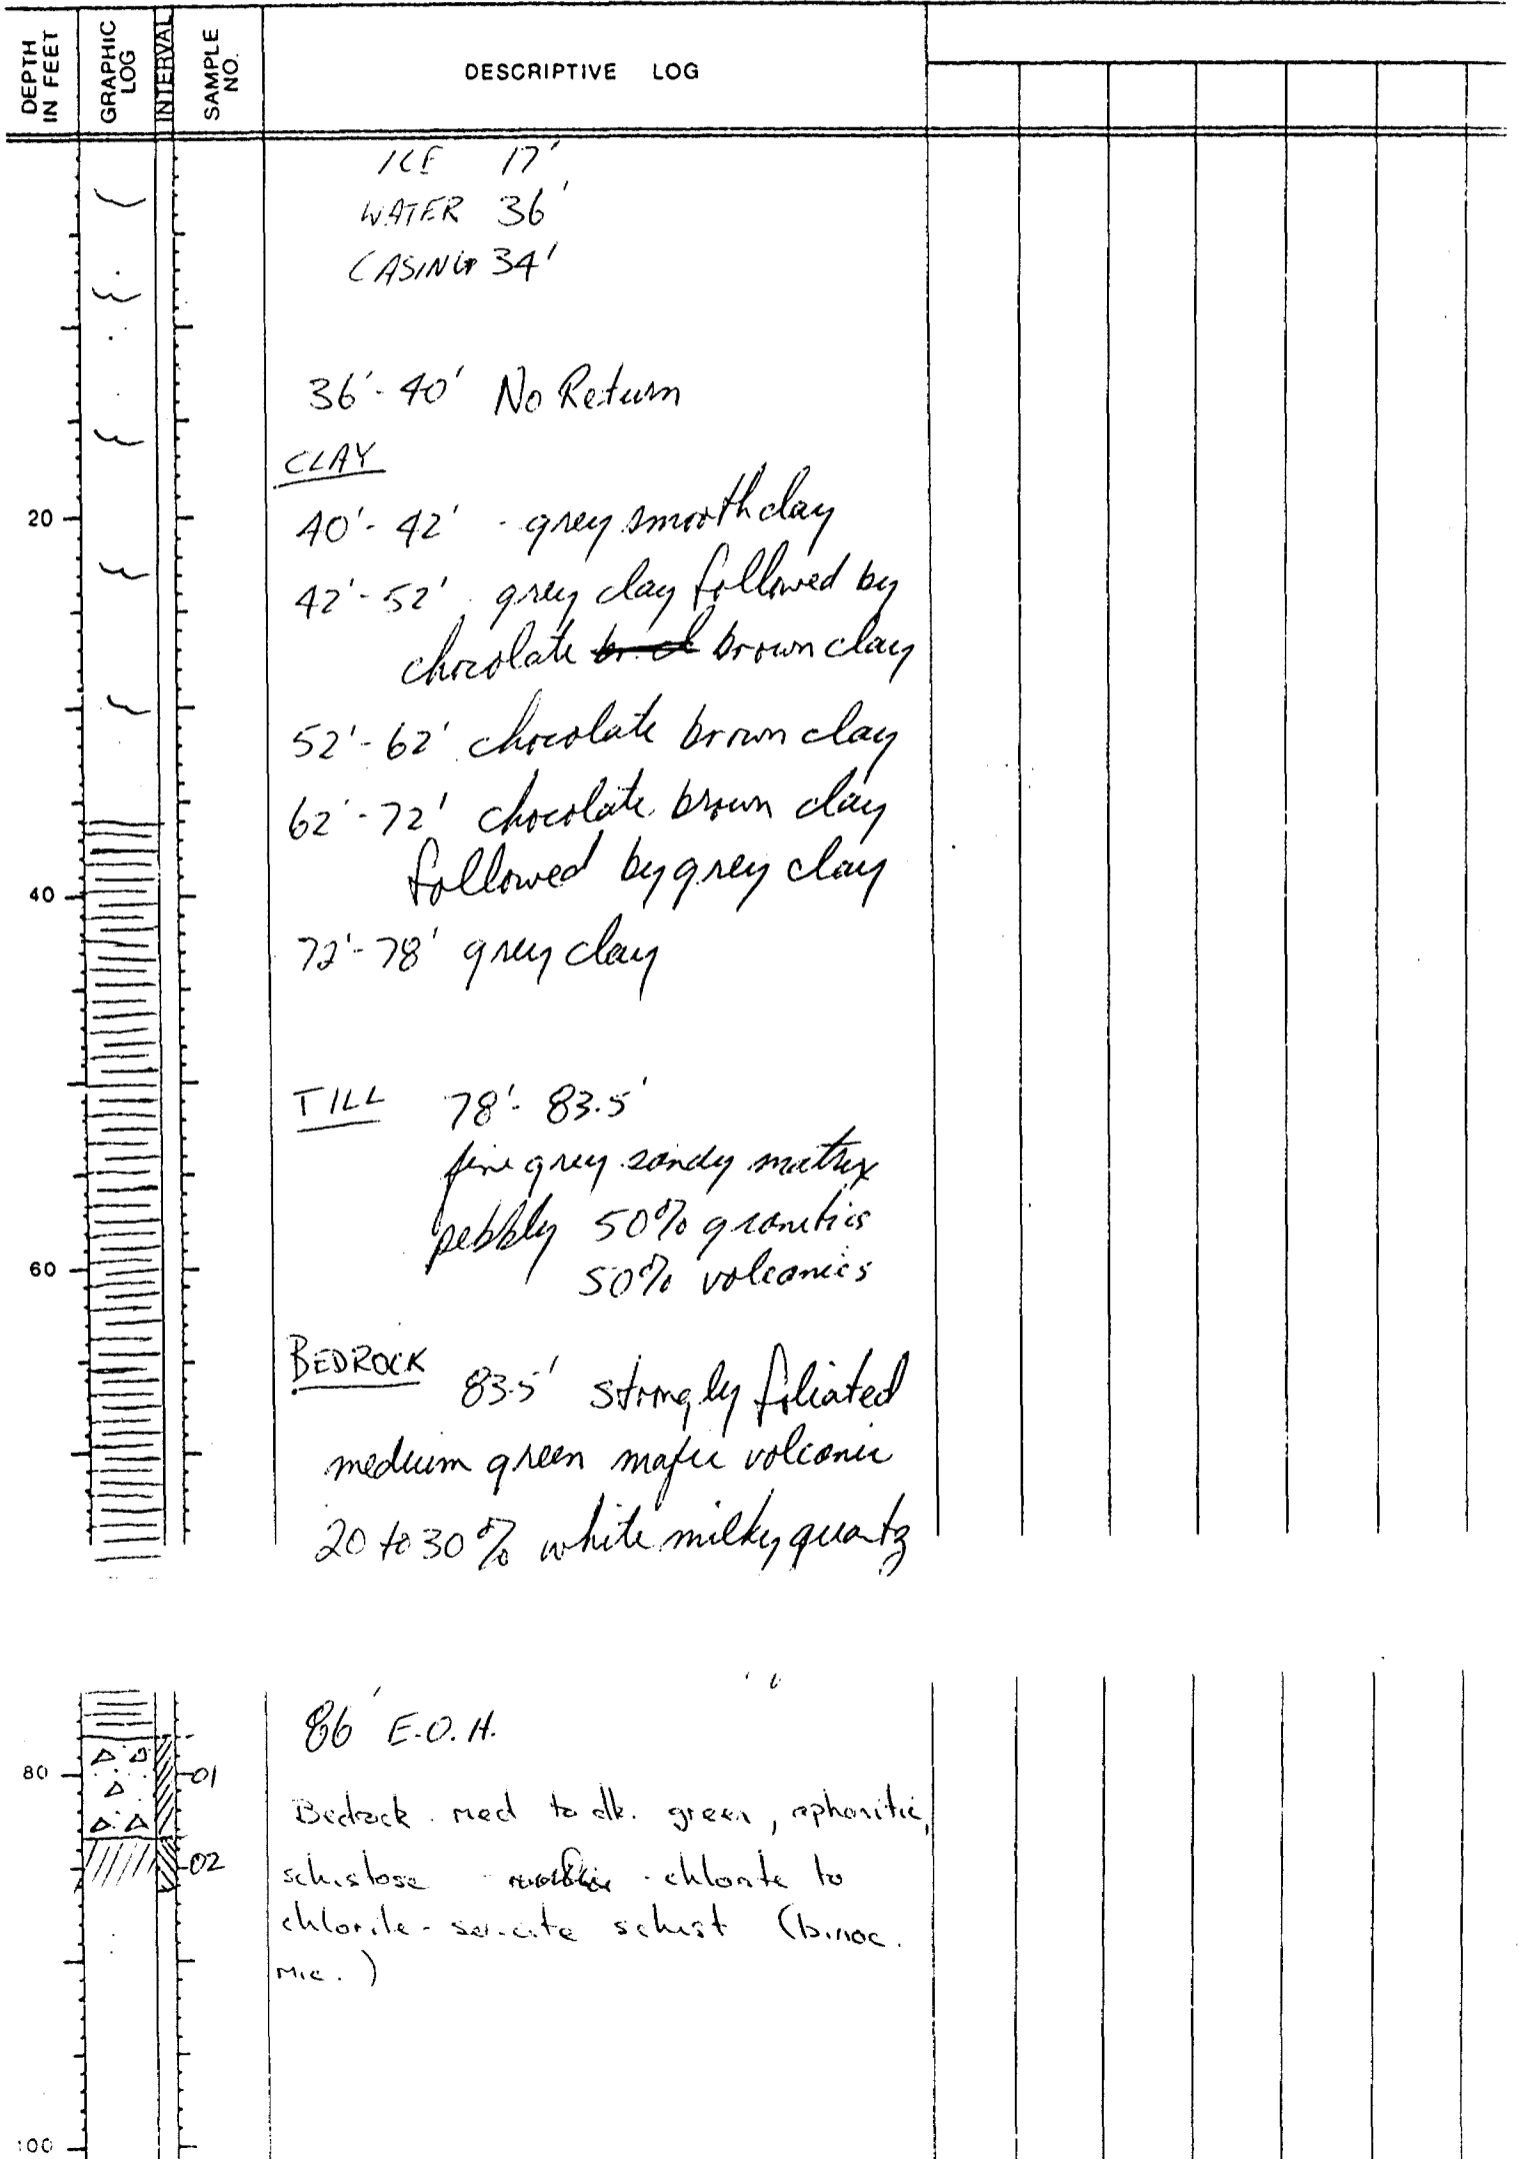 DEPTH IN FEET
GRAPHIC LOG
INTERVAL
SAMPLE NO.
DESCRIPTIVE LOG
ICE 17'
WATER 36'
CASING 34'
36'-40' No Return
CLAY
20
40'-42' - grey smooth clay
42'-52' grey clay followed by
chocolate brown clay
52'-62' chocolate brown clay
62'-72' chocolate brown clay
followed by grey clay
40
72'-78' grey clay
TILL 78'-83.5'
fine grey sandy matrix
pebbly 50% granitics
60
50% volcanics
BEDROCK 83.5' strongly foliated
medium green mafic volcanic
20 to 30% white milky quartz
86' E.O.H.
80
01
Bedrock med to dk. green, aphanitic,
02
schistose - chlorite to
chlorite-sericite schist (binoc.
mic.)
100